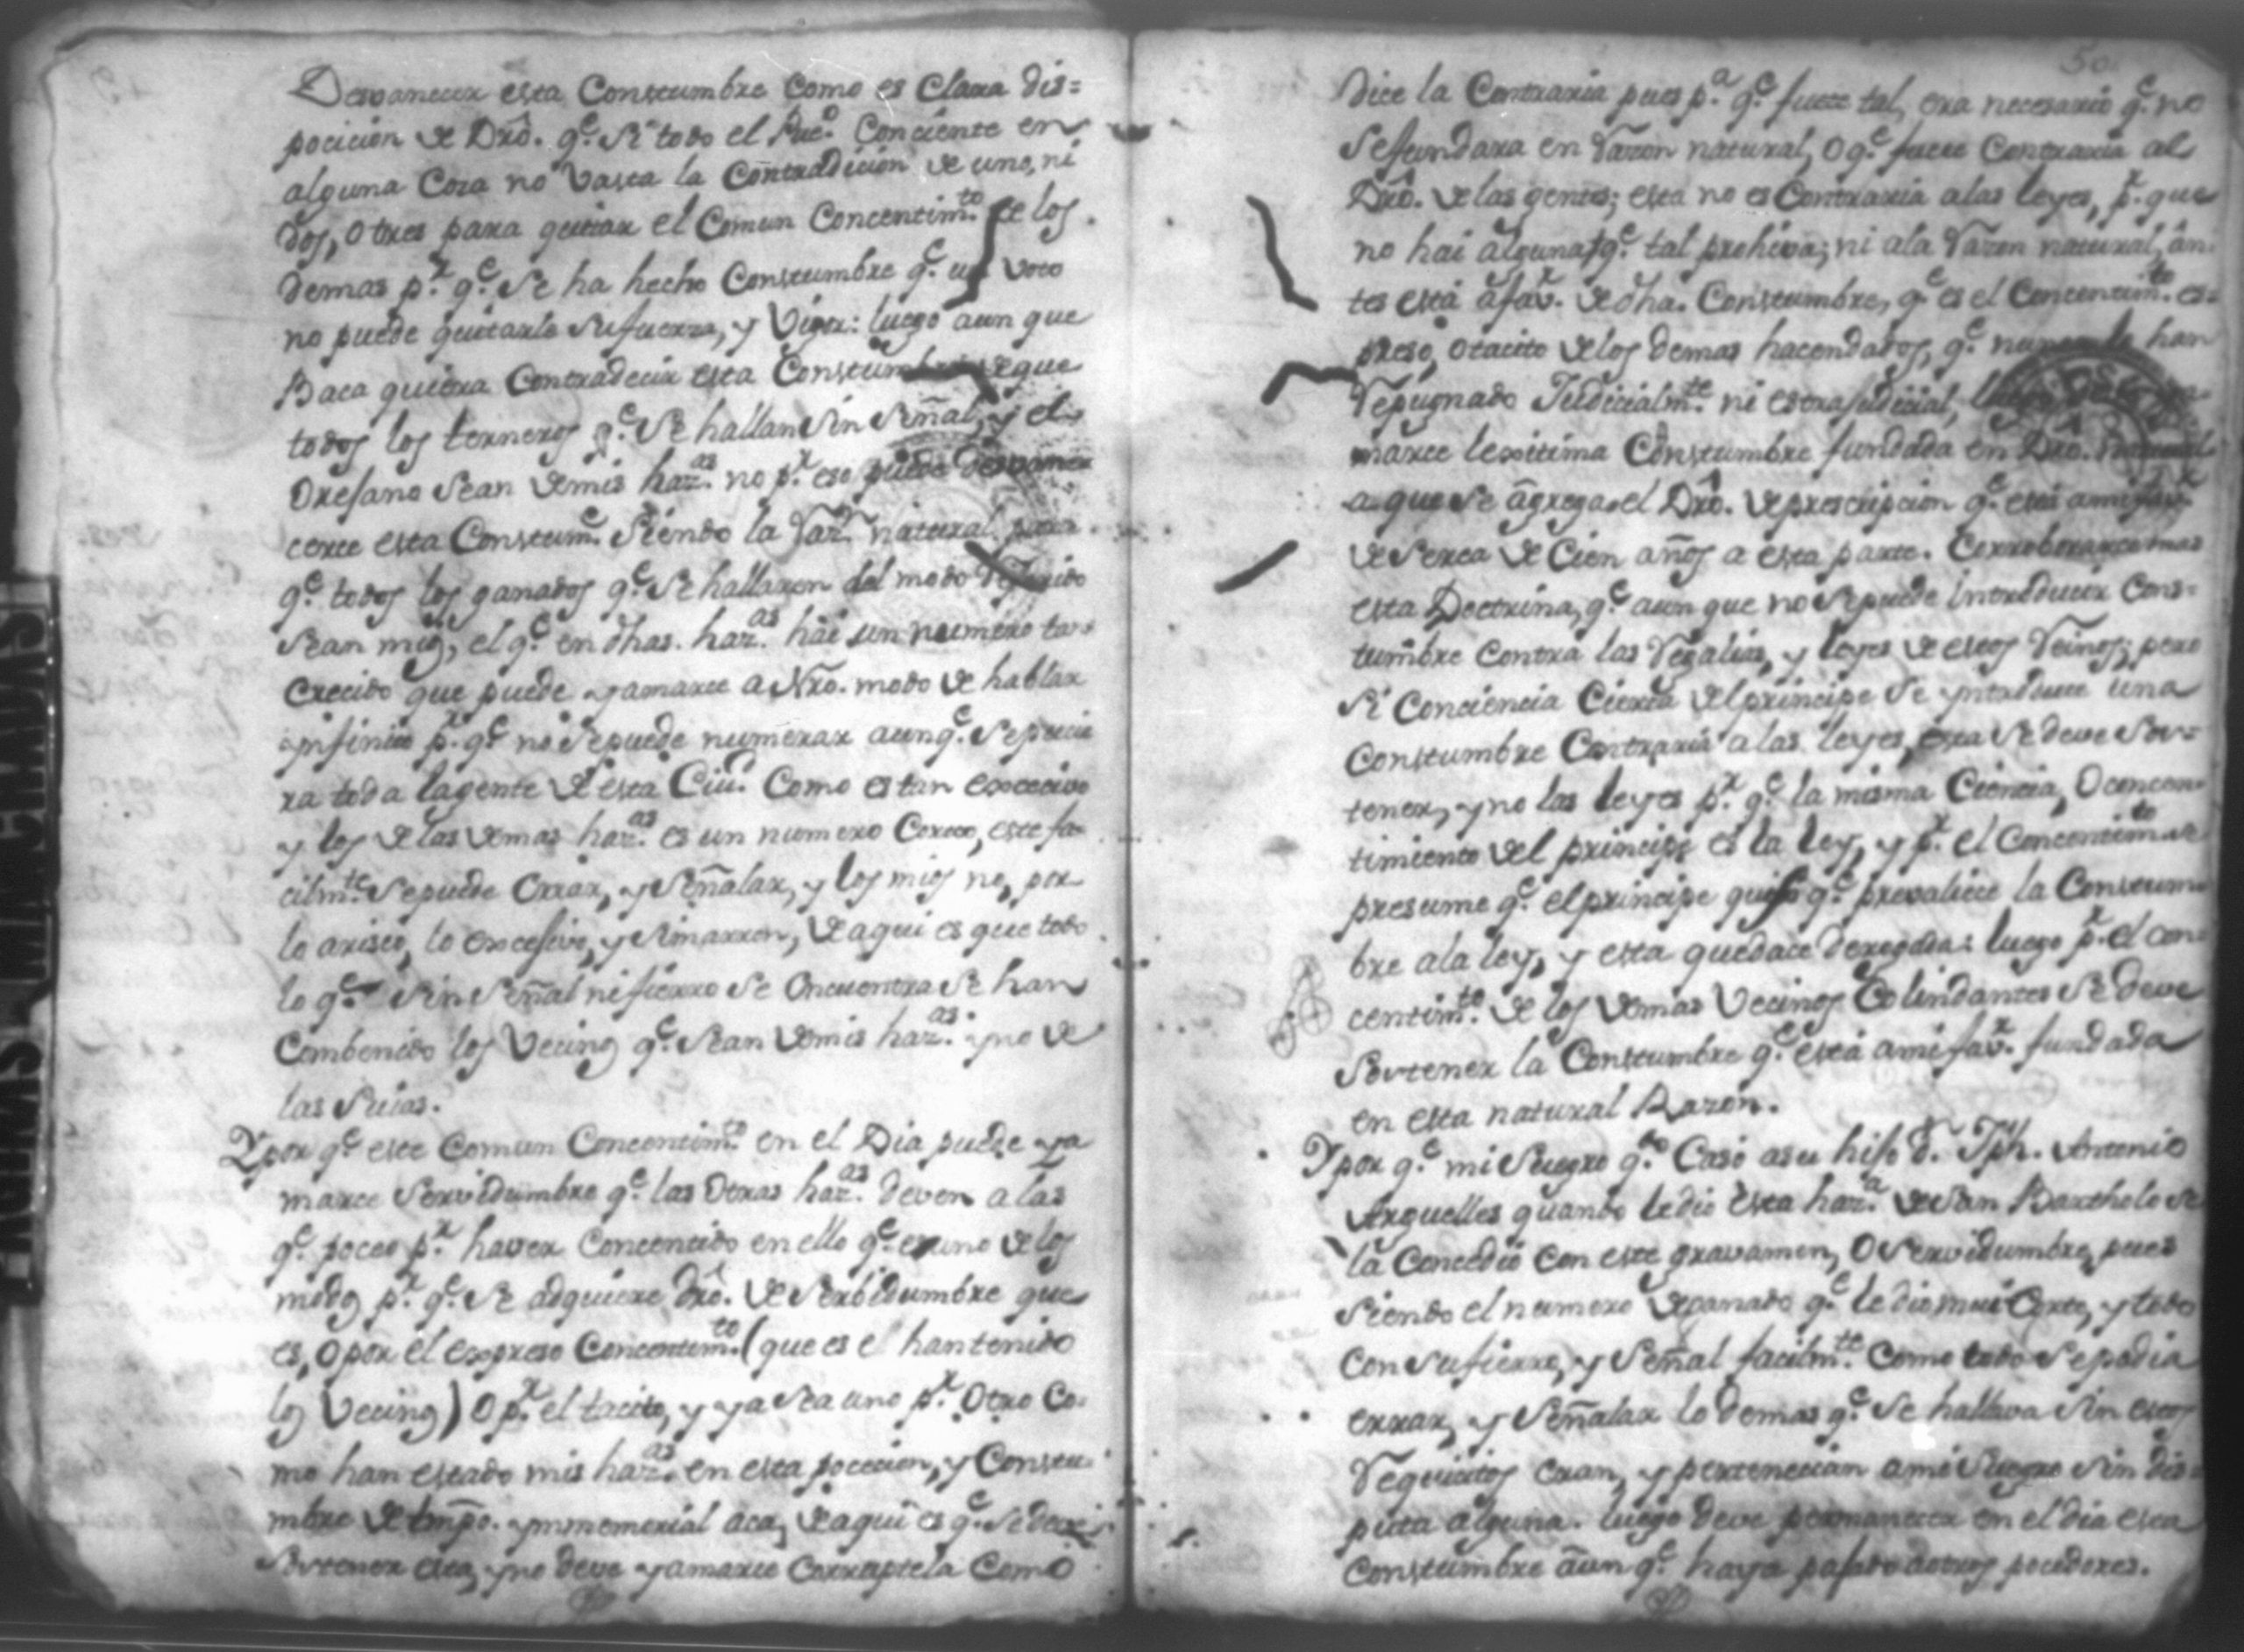 Desvanecer esta Constumbre como es Clara dis=
pocicion de Dro. q.e Si todo el Pue.o Conciente en
alguna Cosa no vasta la Contradicion de uno, ni
dos, o tres para quitar el Comun Concentim.to de los
demas p.r q.e Se ha hecho Constumbre q.e un voto
no puede quitarle Sufuerza, y Vigor: luego aun que
Baca quiera Contradecir esta Constumbre de que
todos los terneros q.e Se hallan Sin Señal, y el
Orejano Sean demis haz.as no p.r eso puede desvane
cerce esta Constum.e Siendo la Raz.n natural para
q.e todos los ganados q.e Se hallaren del modo Referido
Sean mios, el q.e en dhas. haz.as hai un numero tan
Crecido que puede yamarce a Nro. modo de hablar
ynfinito p.r q.e no Sepuede numerar aunq.e Sepucie
ra toda lagente de esta Ciu.d Como es tan excecivo
y los de las demas haz.as es un numero Corto, este fa
cilm.te Sepuede Errar, y Señalar, y los mios no, por
lo arisco, lo excesivo, y Simarron, de aqui es que todo
lo q.e Sin Señal ni fierro Se Encuentra Se han
Combenido los Vecinos q.e Sean demis haz.as y no de
las Suias.
Y por q.e este Comun Concentim.to en el Dia puede ya
marce Servidumbre q.e las Otras haz.as deven a las
q.e poceo p.r haver Concentido en ello q.e es uno de los
modos p.r q.e Se adquiere dro. de Serbidumbre que
es, o por el expreso Concentim.to (que es el han tenido
los Vecinos) O p.r el tacito, y ya Sea uno p.r Otro Co
mo han estado mis haz.as en esta pocecion, y Constu
mbre de tmpo. ynmemorial aca, de aqui es q.e Se deve
Sovtener esta, y no deve yamarce Corruptela Como
50
Dice la Contraria pues p.a q.e fuece tal, era necesario q.e no
Sefundara en Razon natural, O q.e fuece Contraria al
Dro. de las gentes; esta no es Contraria alas leyes, p.r que
no hai alguna q.e tal prohiva; ni ala Razon natural, an
tes está a fav.r de dha. Constumbre, q.e es el Concentim.to es=
preso, o tacito de los demas hacendados, q.e nunca la han
Repugnado Judicialm.te ni extrajudicial,
marce lexitima Constumbre fundada en Dro. natural
a que Se agrega el Dro. de prescripcion q.e está ami fav.r
de Serca de Cien años a esta parte. Corroborarce mas
esta Doctrina, q.e aun que no Sepuede introducir Cons=
tumbre Contra las Regalias, y leyes de estos Reinos; pero
Si Conciencia Cierta del principe Se yntroduce una
Constumbre Contraria alas leyes, esta Se deve Sov=
tener, y no las leyes p.r q.e la misma Ciencia, O concen
timiento del principe es la ley, y p.r el Concentim.to se
presume q.e el principe quiso q.e prevaliece la Constum
bre ala ley, y esta quedace derogada: luego p.r el con
centim.to de los demas Vecinos Colindantes Se deve
Sovtener la Constumbre q.e está ami fav.r fundada
en esta natural Razon.
Y por q.e mi Suegro q.do Casó asu hijo d.n Jph. Antonio
Arguelles quando le dió esta haz.a de San Bartholo Se
la Concedió Con este gravamen, O Servidumbre, pues
Siendo el numero de ganado q.e le dio mui Corto, y todo
Con Sufierro, y Señal facilm.te Como todo Sepodia
errar, y Señalar lo demas q.e Se hallava Sin estos
Requicitos eran, y pertenecian ami Suegro Sin dis=
puta alguna. luego deve permanecer en el dia esta
Constumbre aun q.e haya pasado a otros pocedores.